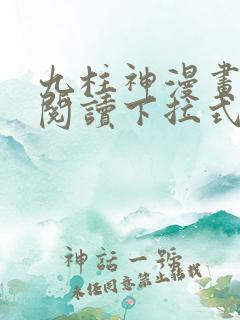 九柱神漫畫
閱讀下拉式
神話一號
未經同意禁止轉載